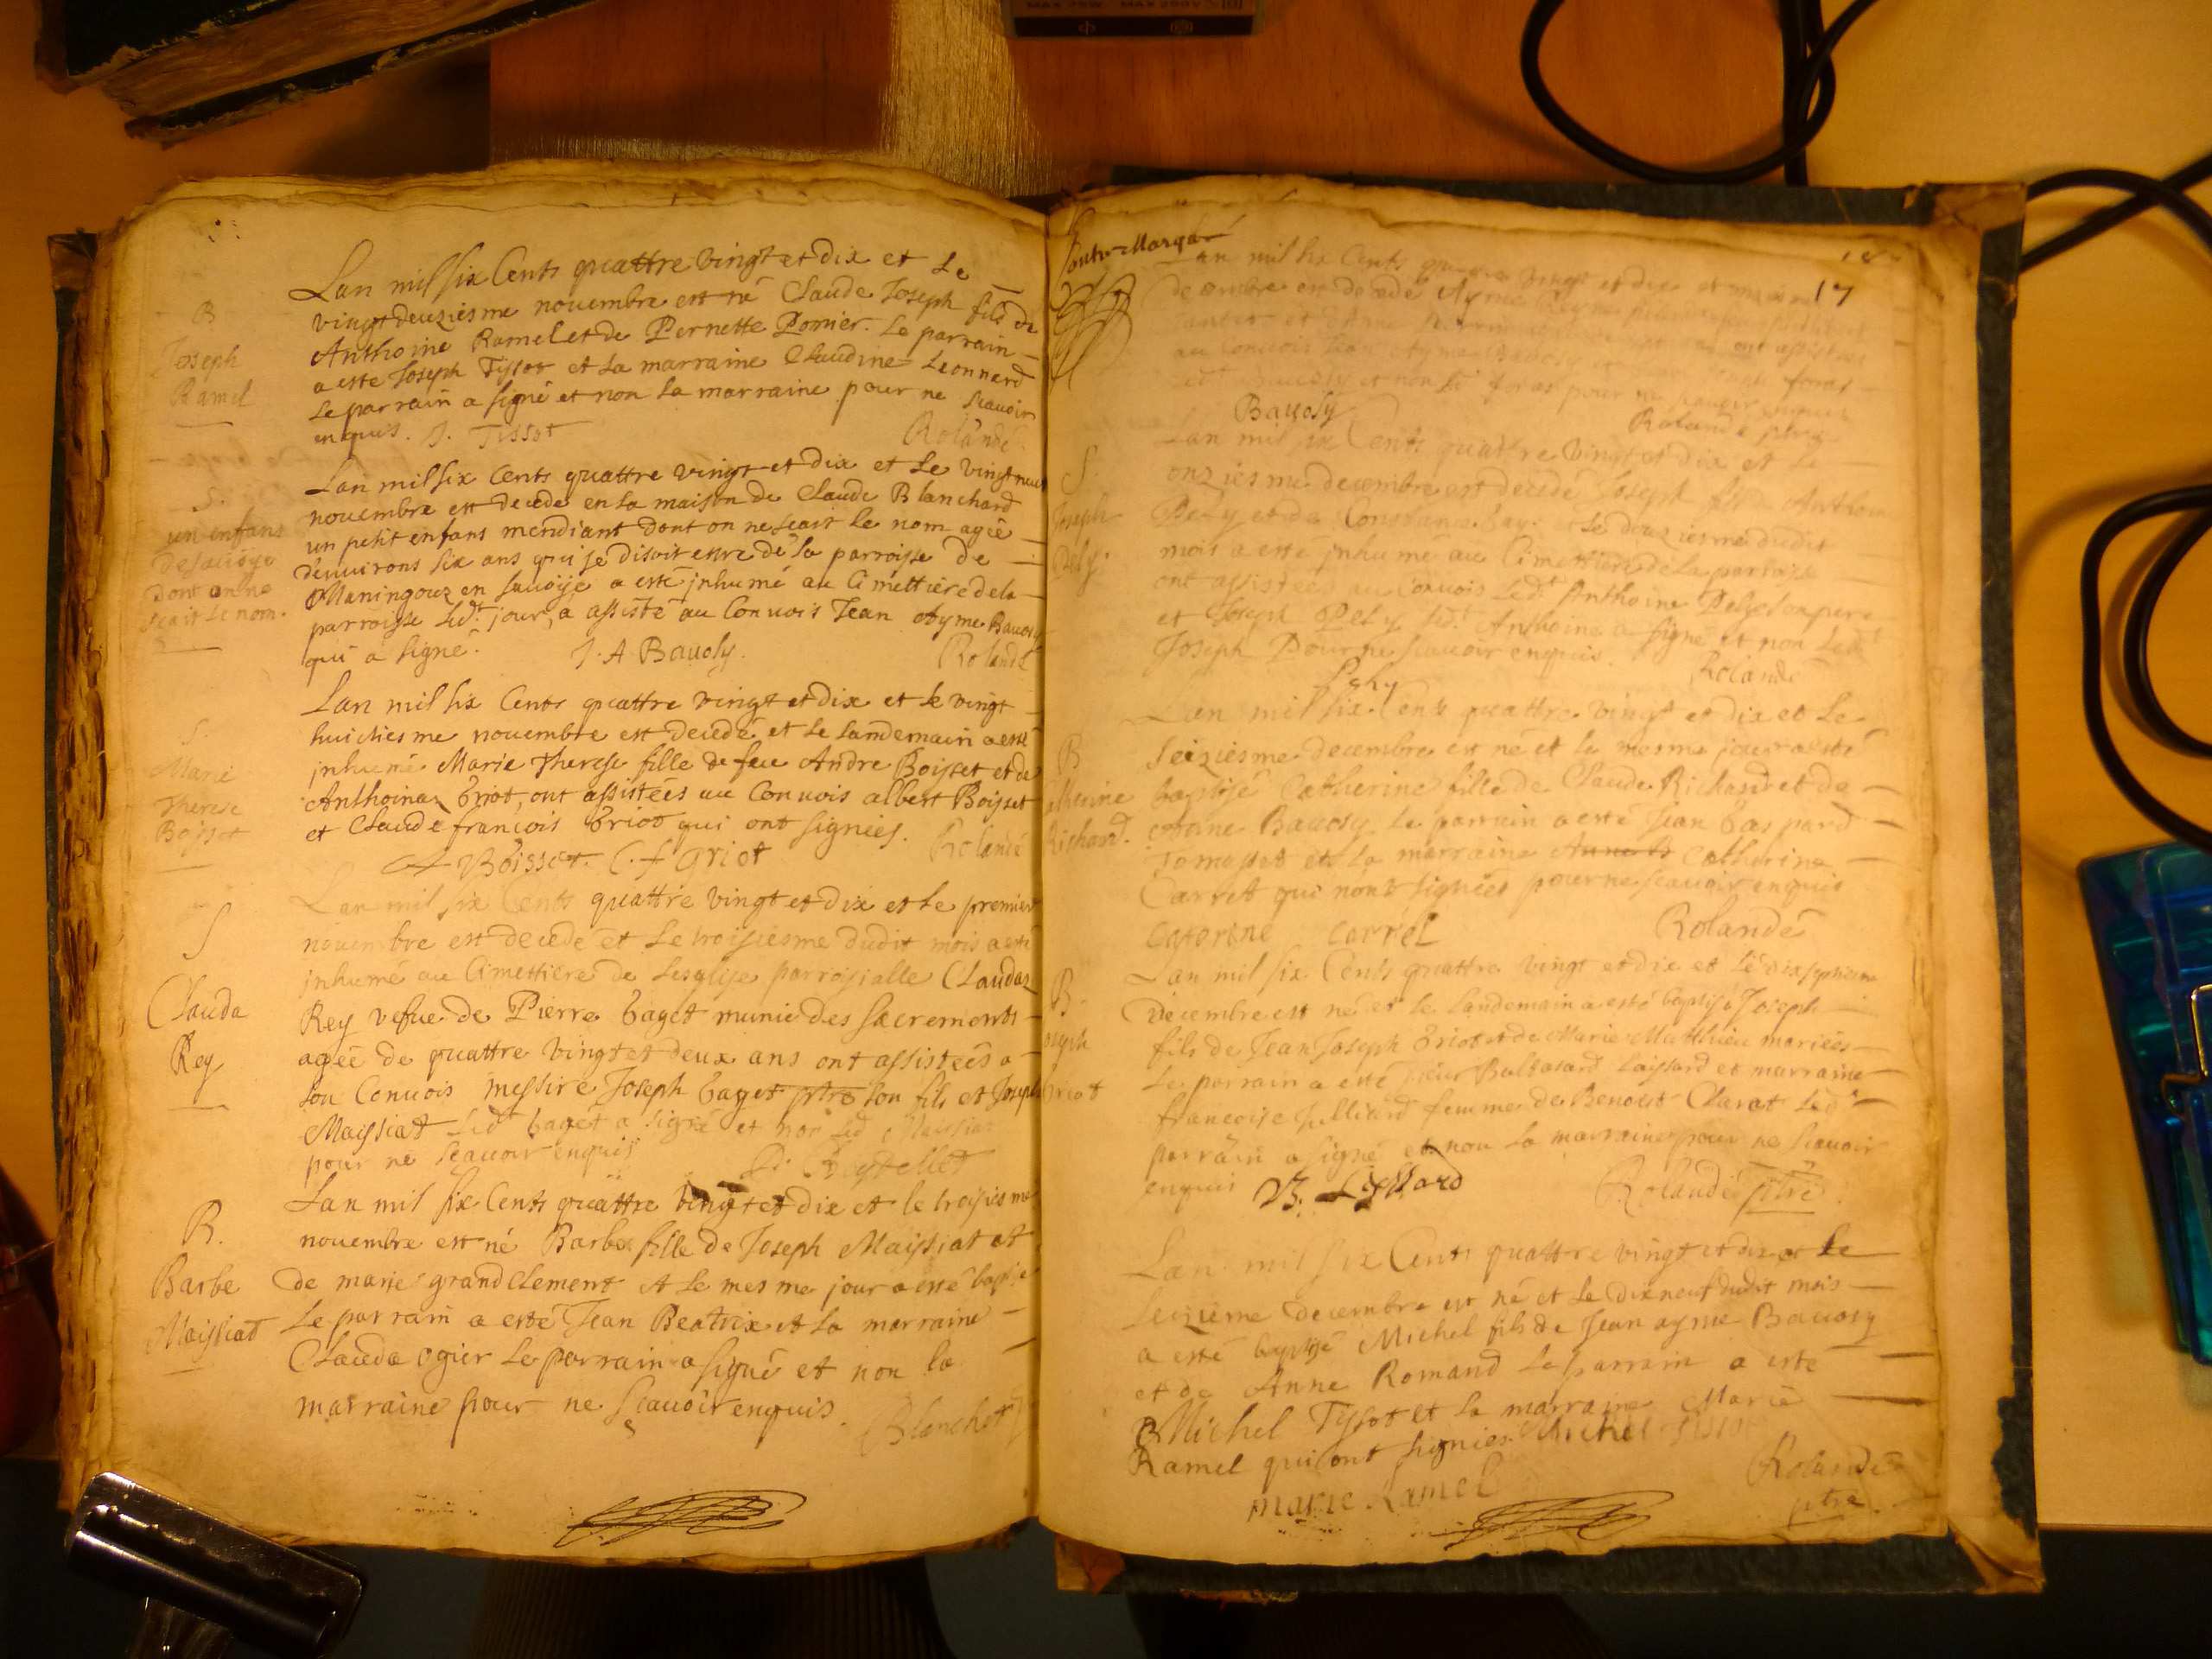 B
Joseph
Ramel
Lan mil six Cents quattre vingt et dix et Le
vingt deuziesme nouembre est né Claude Joseph fils de
Anthoine Ramel et de Pernette Pomier. Le parrain
a este Joseph Tissot et La marraine Claudine Leonnard
Le parrain a signé et non la marraine pour ne scauoir
enquis. J. Tissot Rolandé
S.
un enfans
de sauoye
dont on ne
scait le nom.
Lan mil six Cents quattre vingt et dix et Le vingt neuf
nouembre est decede en la maison de Claude Blanchard
un petit enfans mendiant dont on ne scait le nom agée
denuirons six ans qui se disoit estre de la parroisse de
Maningouz en sauoije a esté jnhumé au Cimettiere de la
parroisse Led.t jour, a assisté au Conuois Jean Ayme Bauosy
qui a signé. J. A Bauosy. Rolandé
S.
Marie
Therese
Boisset
Lan mil six Cents quattre vingt et dix et le vingt
huictiesme nouembre est decedé et le Landemain a esté
jnhumé Marie Therese fille de feu Andre Boisset et de
Anthoina Griot, ont assistées au Conuois albert Boisset
et Claude francois Griot qui ont signées. Rolandé
A Boisset. C. f Griot
S
Clauda
Rey
Lan mil six Cents quattre vingt et dix et Le premier
nouembre est decede et Le troisiesme dudit mois a esté
jnhumé au Cimettiere de Lesglise parroissialle Clauda
Rey vefue de Pierre Gaget munie des sacrements
agée de quattre vingt et deux ans ont assistées a
son Conuois messire Joseph Gaget ptre son fils et Joseph
Maissiat Led.t Gaget a signé et non Led. Maissiat
pour ne scauoir enquis
B.
Barbe
Maissiat
Lan mil six Cents quattre vingt et dix et le troisiesme
nouembre est né Barbe fille de Joseph Maissiat et
de marie grandclement et Le mesme jour a esté baptisé
Le parrain a esté Jean Beatrix et La marraine
Clauda ogier Le parrain a signé et non la
marraine pour ne scauoir enquis. Blanchet
17
Lan mil six Cents quattre vingt et dix et
decembre est decedé Ayme
ont assistees
au conuois Jean Ayme Bauosy
Led.t Bauosy et non Led. foras pour ne scauoir enquis
Bauosy Rolandé ptre
S.
Joseph
Pely.
Lan mil six Cents quattre vingt et dix et Le
onziesme decembre est decedé Joseph fils Anthoine
Pely et de Constance Gay. Le douziesme dudit
mois a este jnhumé au Cimettiere de la parroisse
ont assistée au Conuois Led.t Anthoine Pely son pere
et Joseph Pely Led.t Anthoine a signé et non Led.t
Joseph Pour ne scauoir enquis. Rolandé
Pely
B
Catherine
Richard.
Lan mil six Cents quattre vingt et dix et Le
seiziesme decembre est né et le mesme jour a esté
baptisé Catherine fille de Claude Richard et de
Anne Bauosy Le parrain a esté Jean Gaspard
Tomasset et La marraine Anne B Catherine
Carret qui nont signées pour ne scauoir enquis
Caterine Carrel Rolandé
B.
Joseph
Griot
Lan mil six Cents quattre vingt et dix et Le dixseptiesme
Decembre est né et le Landemain a esté baptisé Joseph
fils de Jean Joseph Griot et de Marie Matthieu mariées
Le parrain a esté sieur Baltasard Laissard et marraine
francoise Julliard femme de Benoist Clarat Led.t
parrain a signé et non La marraine pour ne scauoir
enquis B. Laissard Rolandé ptre
Lan mil six Cents quattre vingt et dix et Le
seizieme decembre est né et Le dixneuf dudit mois
a esté baptisé Michel fils de Jean ayme Bauosy
et de Anne Romand Le parrain a esté
Michel Tissot et La marraine Marie
Ramel qui ont signées. Michel Tissot
marie Ramel Rolandé
ptre.